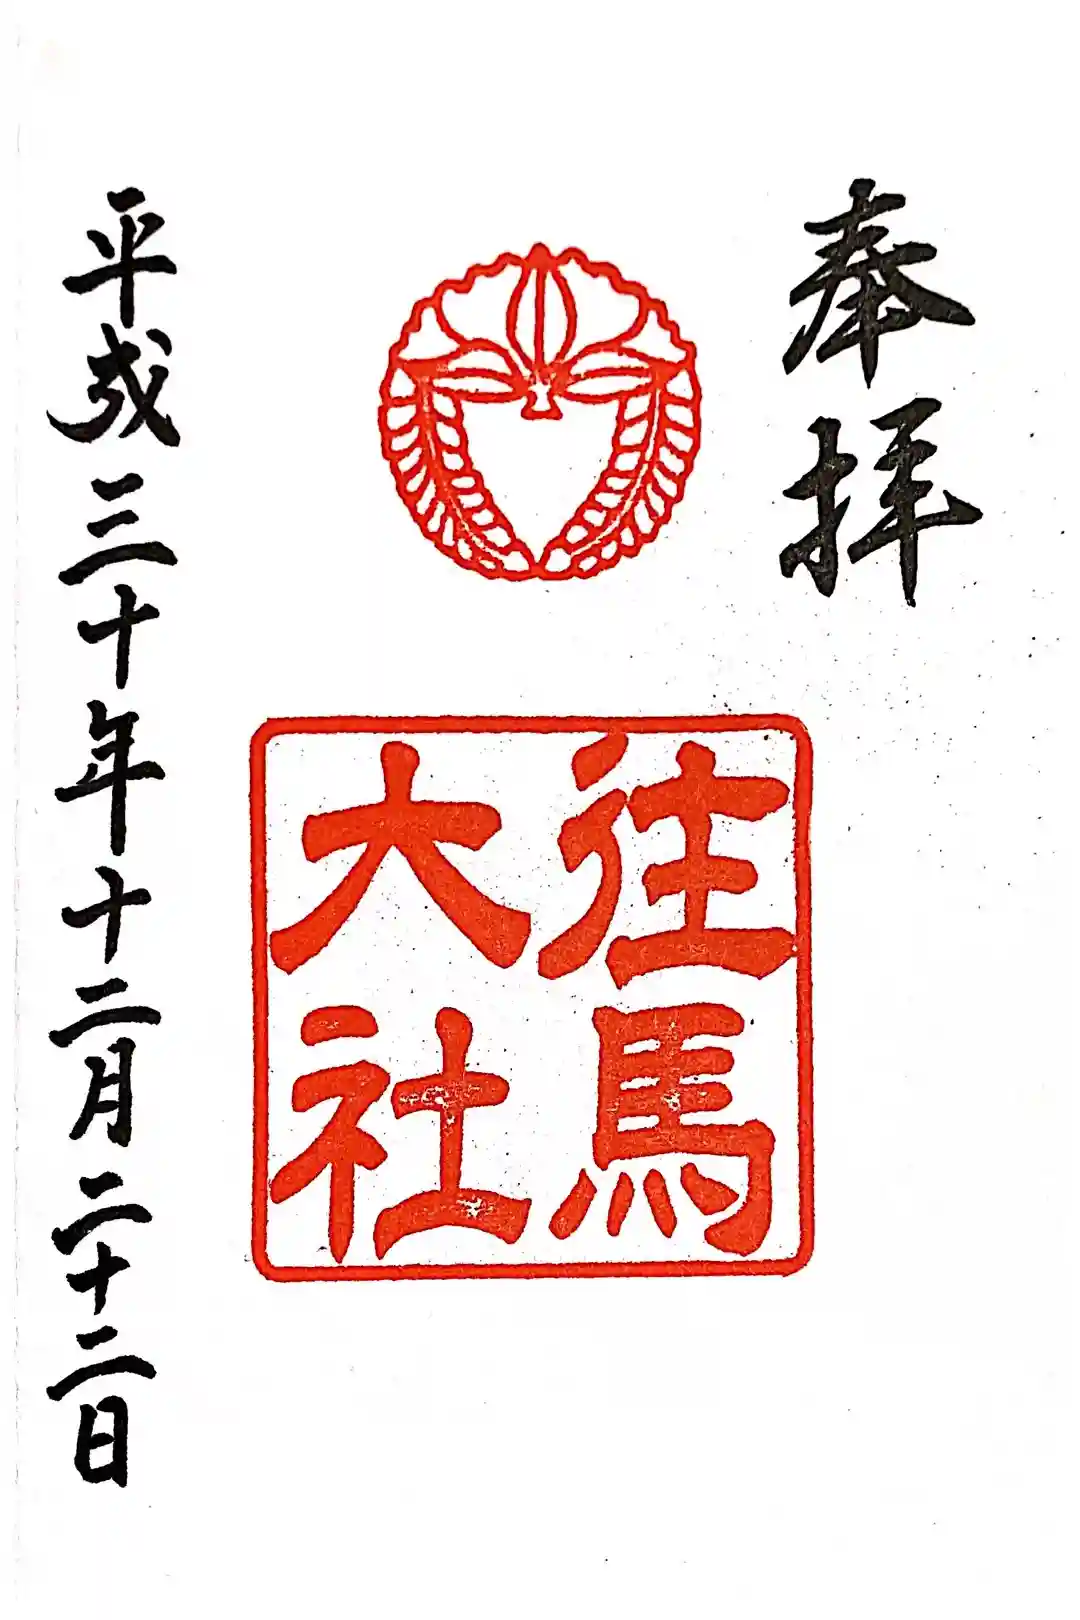 奉拝
往馬
大社
平成三十年十二月二十二日